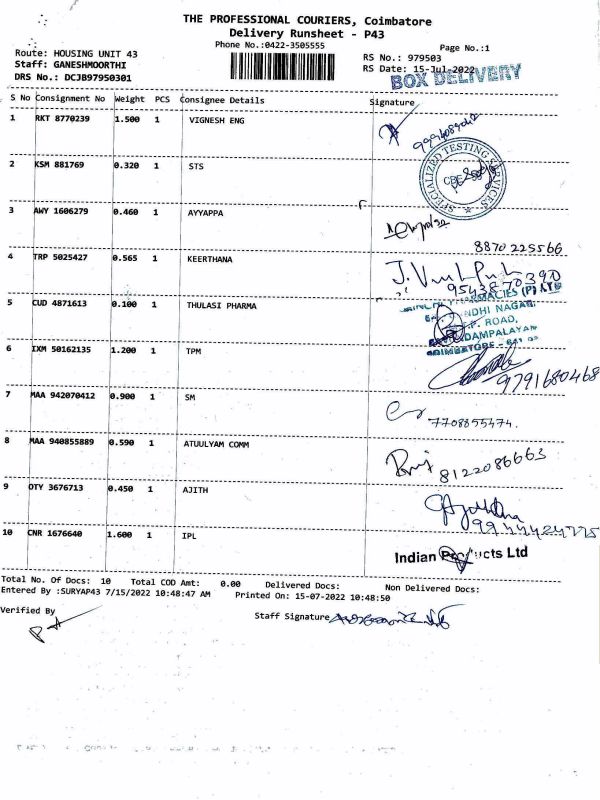 THE PROFESSIONAL COURIERS, Coimbatore
Delivery Runsheet - P43
Phone No.:0422-3505555
Page No.:1
Route: HOUSING UNIT 43
RS No.: 979503
Staff: GANESHMOORTHI
RS Date: 15-Jul-2022
DRS No.: DCJB97950301
BOX DELIVERY
S No Consignment No Weight PCS Consignee Details Signature
1 RKT 8770239 1.500 1 VIGNESH ENG
2 KSM 881769 0.320 1 STS
SPECIALIZED TESTING SERVICES
CBE
3 AWY 1606279 0.460 1 AYYAPPA
8870225566
4 TRP 5025427 0.565 1 KEERTHANA
9543870390
5 CUD 4871613 0.100 1 THULASI PHARMA
(P) LTD
NDHI NAGAR,
P. ROAD,
DAMPALAYAM
COIMBATORE
6 IXM 50162135 1.200 1 TPM
9791680468
7 MAA 942070412 0.900 1 SM
7708855474.
8 MAA 940855889 0.590 1 ATUULYAM COMM
8122086663
9 OTY 3676713 0.450 1 AJITH
10 CNR 1676640 1.600 1 IPL
Indian Products Ltd
Total No. Of Docs: 10 Total COD Amt: 0.00 Delivered Docs: Non Delivered Docs:
Entered By :SURYAP43 7/15/2022 10:48:47 AM Printed On: 15-07-2022 10:48:50
Verified By
Staff Signature